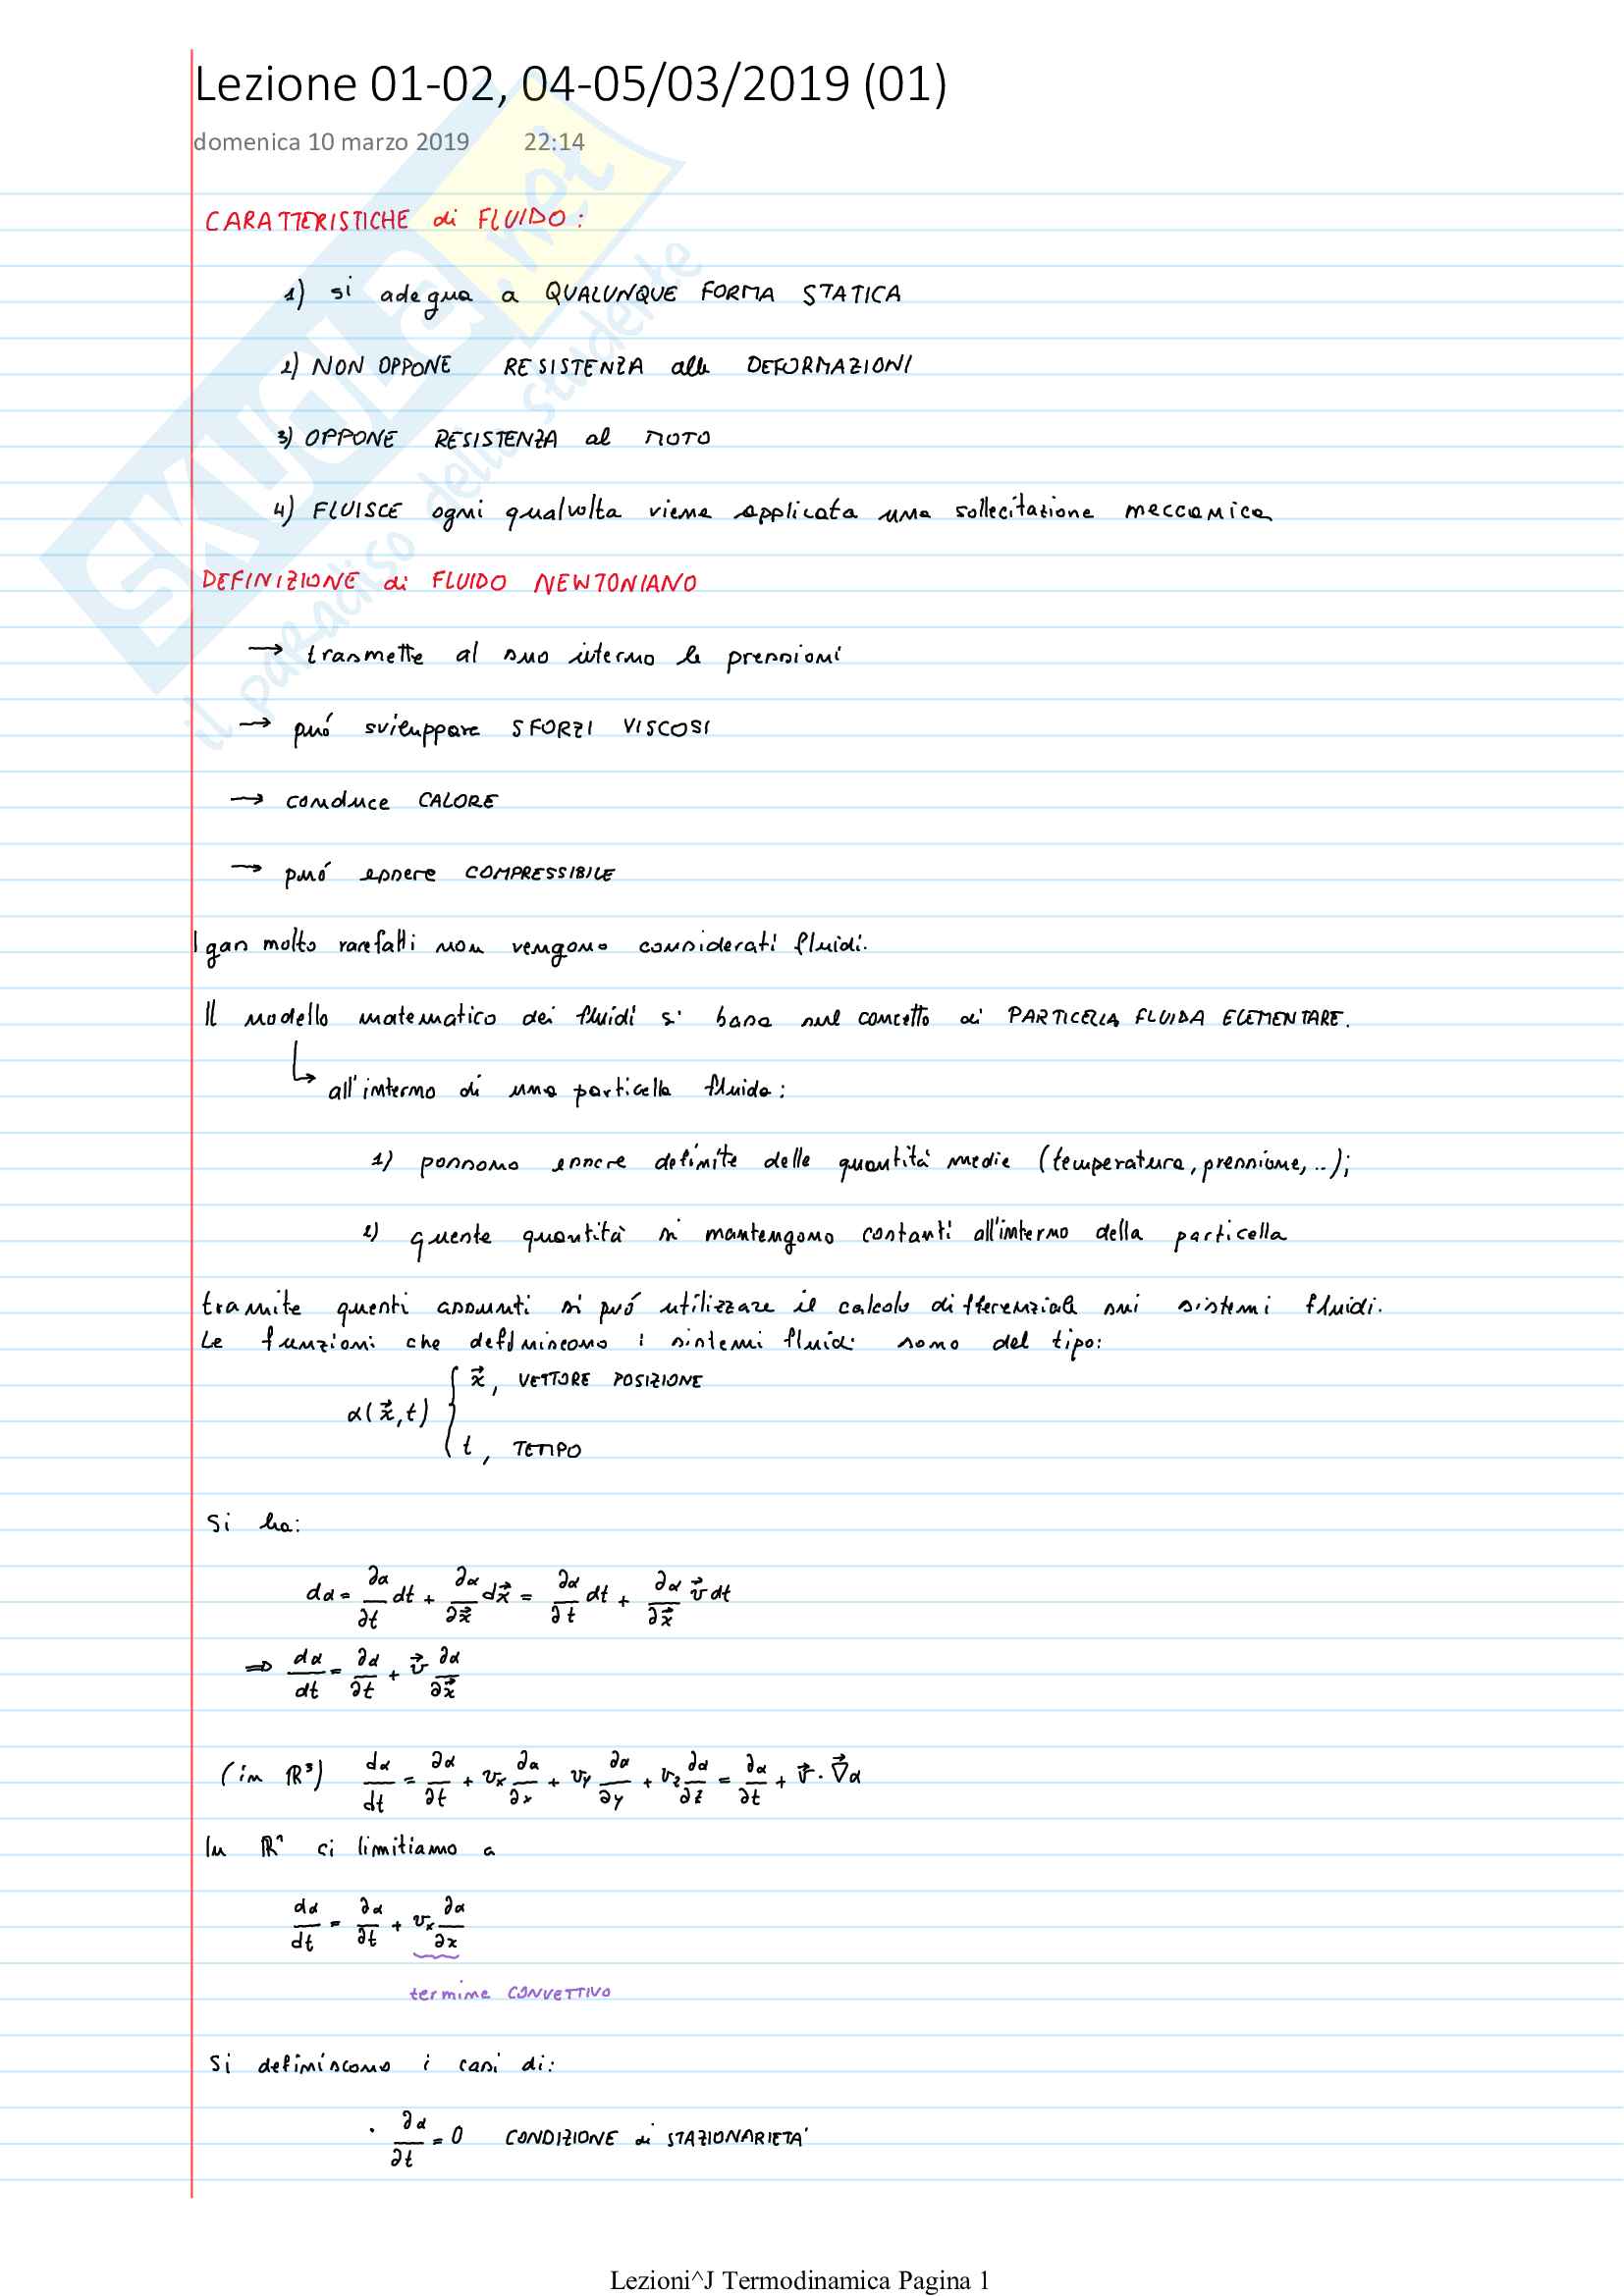 Lezione 01-02, 04-05/03/2019 (01)
domenica 10 marzo 2019 22:14
CARATTERISTICHE di FLUIDO:
1) si adegua a QUALUNQUE FORMA STATICA
2) NON OPPONE RESISTENZA alle DEFORMAZIONI
3) OPPONE RESISTENZA al MOTO
4) FLUISCE ogni qualvolta viene applicata una sollecitazione meccanica
DEFINIZIONE di FLUIDO NEWTONIANO
→ trasmette al suo interno le pressioni
→ puó sviluppare SFORZI VISCOSI
→ conduce CALORE
→ puó essere COMPRESSIBILE
I gas molto rarefatti non vengono considerati fluidi.
Il modello matematico dei fluidi si basa sul concetto di PARTICELLA FLUIDA ELEMENTARE.
↳ all'interno di una particella fluida:
1) possono essere definite delle quantità medie (temperatura, pressione, ..);
2) queste quantità si mantengono costanti all'interno della particella
tramite questi assunti si puó utilizzare il calcolo differenziale sui sistemi fluidi.
Le funzioni che definiscono i sistemi fluidi sono del tipo:
α(x⃗,t) { x⃗, VETTORE POSIZIONE
t, TEMPO
Si ha:
dα = ∂α/∂t dt + ∂α/∂x⃗ dx⃗ = ∂α/∂t dt + ∂α/∂x⃗ v⃗ dt
⇒ dα/dt = ∂α/∂t + v⃗ ∂α/∂x⃗
(in ℝ³) dα/dt = ∂α/∂t + vx ∂α/∂x + vy ∂α/∂y + vz ∂α/∂z = ∂α/∂t + v⃗ · ∇⃗α
In ℝ¹ ci limitiamo a
dα/dt = ∂α/∂t + vx ∂α/∂x
termine CONVETTIVO
Si definiscono i casi di:
· ∂α/∂t = 0 CONDIZIONE di STAZIONARIETA'
Lezioni^J Termodinamica Pagina 1
SKUOLA.net
il paradiso dello studente